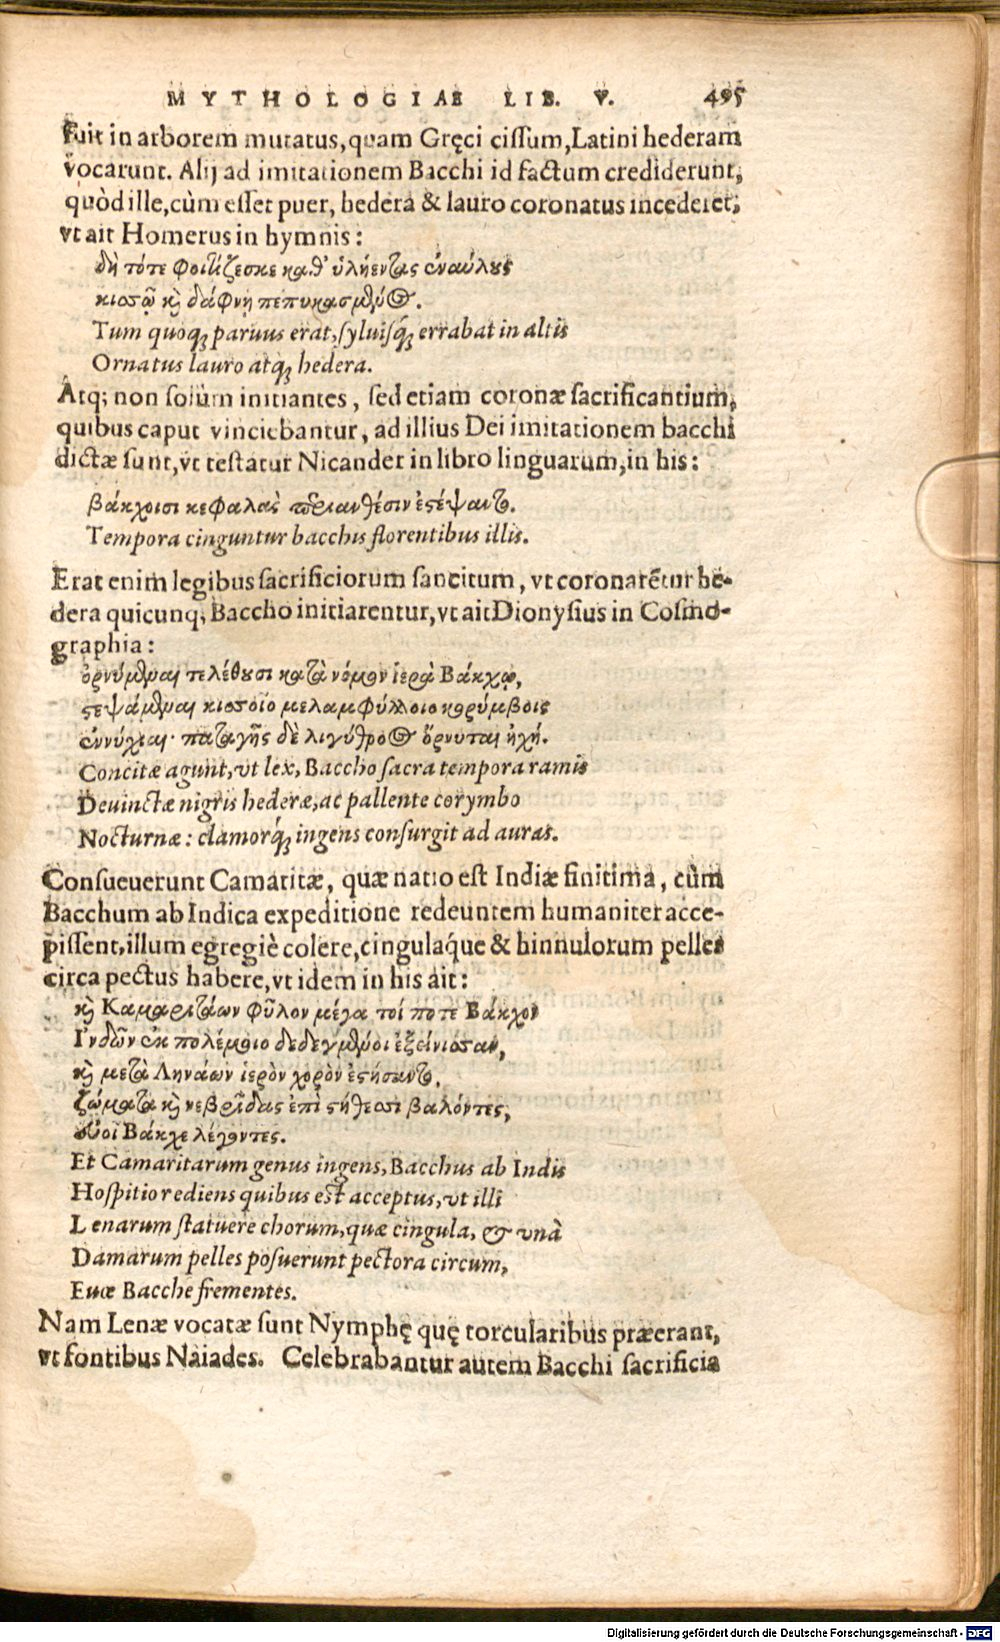 MYTHOLOGIAE LIB. V. 495
fuit in arborem mutatus, quam Gręci cissum, Latini hederam
vocarunt. Alij ad imitationem Bacchi id factum crediderunt,
quòd ille, cùm esset puer, hedera & lauro coronatus incederet,
vt ait Homerus in hymnis:
δὴ τότε φοιτίζεσκε καθ' ὑλήεντας ἐναύλους
κισσῷ καὶ δάφνῃ πεπυκασμένος.
Tum quoq; paruus erat, syluisq́; errabat in altis
Ornatus lauro atq; hedera.
Atq; non solùm initiantes, sed etiam coronæ sacrificantium,
quibus caput vinciebantur, ad illius Dei imitationem bacchi
dictæ sunt, vt testatur Nicander in libro linguarum, in his:
βάκχοισι κεφαλὰς περιανθέσιν ἐστέψαντο.
Tempora cinguntur bacchis florentibus illis.
Erat enim legibus sacrificiorum sancitum, vt coronarẽtur he-
dera quicunq; Baccho initiarentur, vt ait Dionysius in Cosmo-
graphia:
ὀρνύμεναι τελέθουσι κατὰ νόμον ἱερὰ Βάκχῳ,
στεψάμεναι κισσοῖο μελαμφύλλοιο κορύμβοις
ἐννύχιαι· παταγῆς δὲ λιγύθροος ὄρνυται ἠχή.
Concitæ agunt, vt lex, Baccho sacra tempora ramis
Deuinctæ nigris hederæ, ac pallente corymbo
Nocturnæ: clamorq́; ingens consurgit ad auras.
Consueuerunt Camaritæ, quæ natio est Indiæ finitima, cùm
Bacchum ab Indica expeditione redeuntem humaniter acce-
pissent, illum egregiè colere, cingulaq́ue & hinnulorum pelles
circa pectus habere, vt idem in his ait:
καὶ Καμαριτάων φῦλον μέγα τοί ποτε Βάκχον
Ἰνδῶν ἐκ πολέμοιο δεδεγμένοι ἐξείνισσαν,
καὶ μετὰ Ληνάων ἱερὸν χορὸν ἐστήσαντο,
ζώματα καὶ νεβρῖδας ἐπὶ στήθεσσι βαλόντες,
εὐοῖ Βάκχε λέγοντες.
Et Camaritarum genus ingens, Bacchus ab Indis
Hospitio rediens quibus est acceptus, vt illi
Lenarum statuere chorum, quæ cingula, & vnà
Damarum pelles posuerunt pectora circum,
Euœ Bacche frementes.
Nam Lenæ vocatæ sunt Nymphę quę torcularibus præerant,
vt fontibus Naiades. Celebrabantur autem Bacchi sacrificia
Digitalisierung gefördert durch die Deutsche Forschungsgemeinschaft - DFG